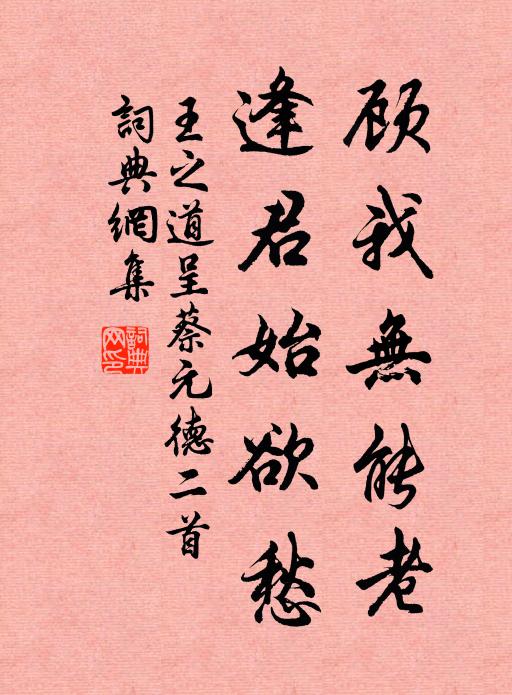 顾我無能老
逢君始欲愁
王之道呈蔡元德二首
詞典網集
詞典網印